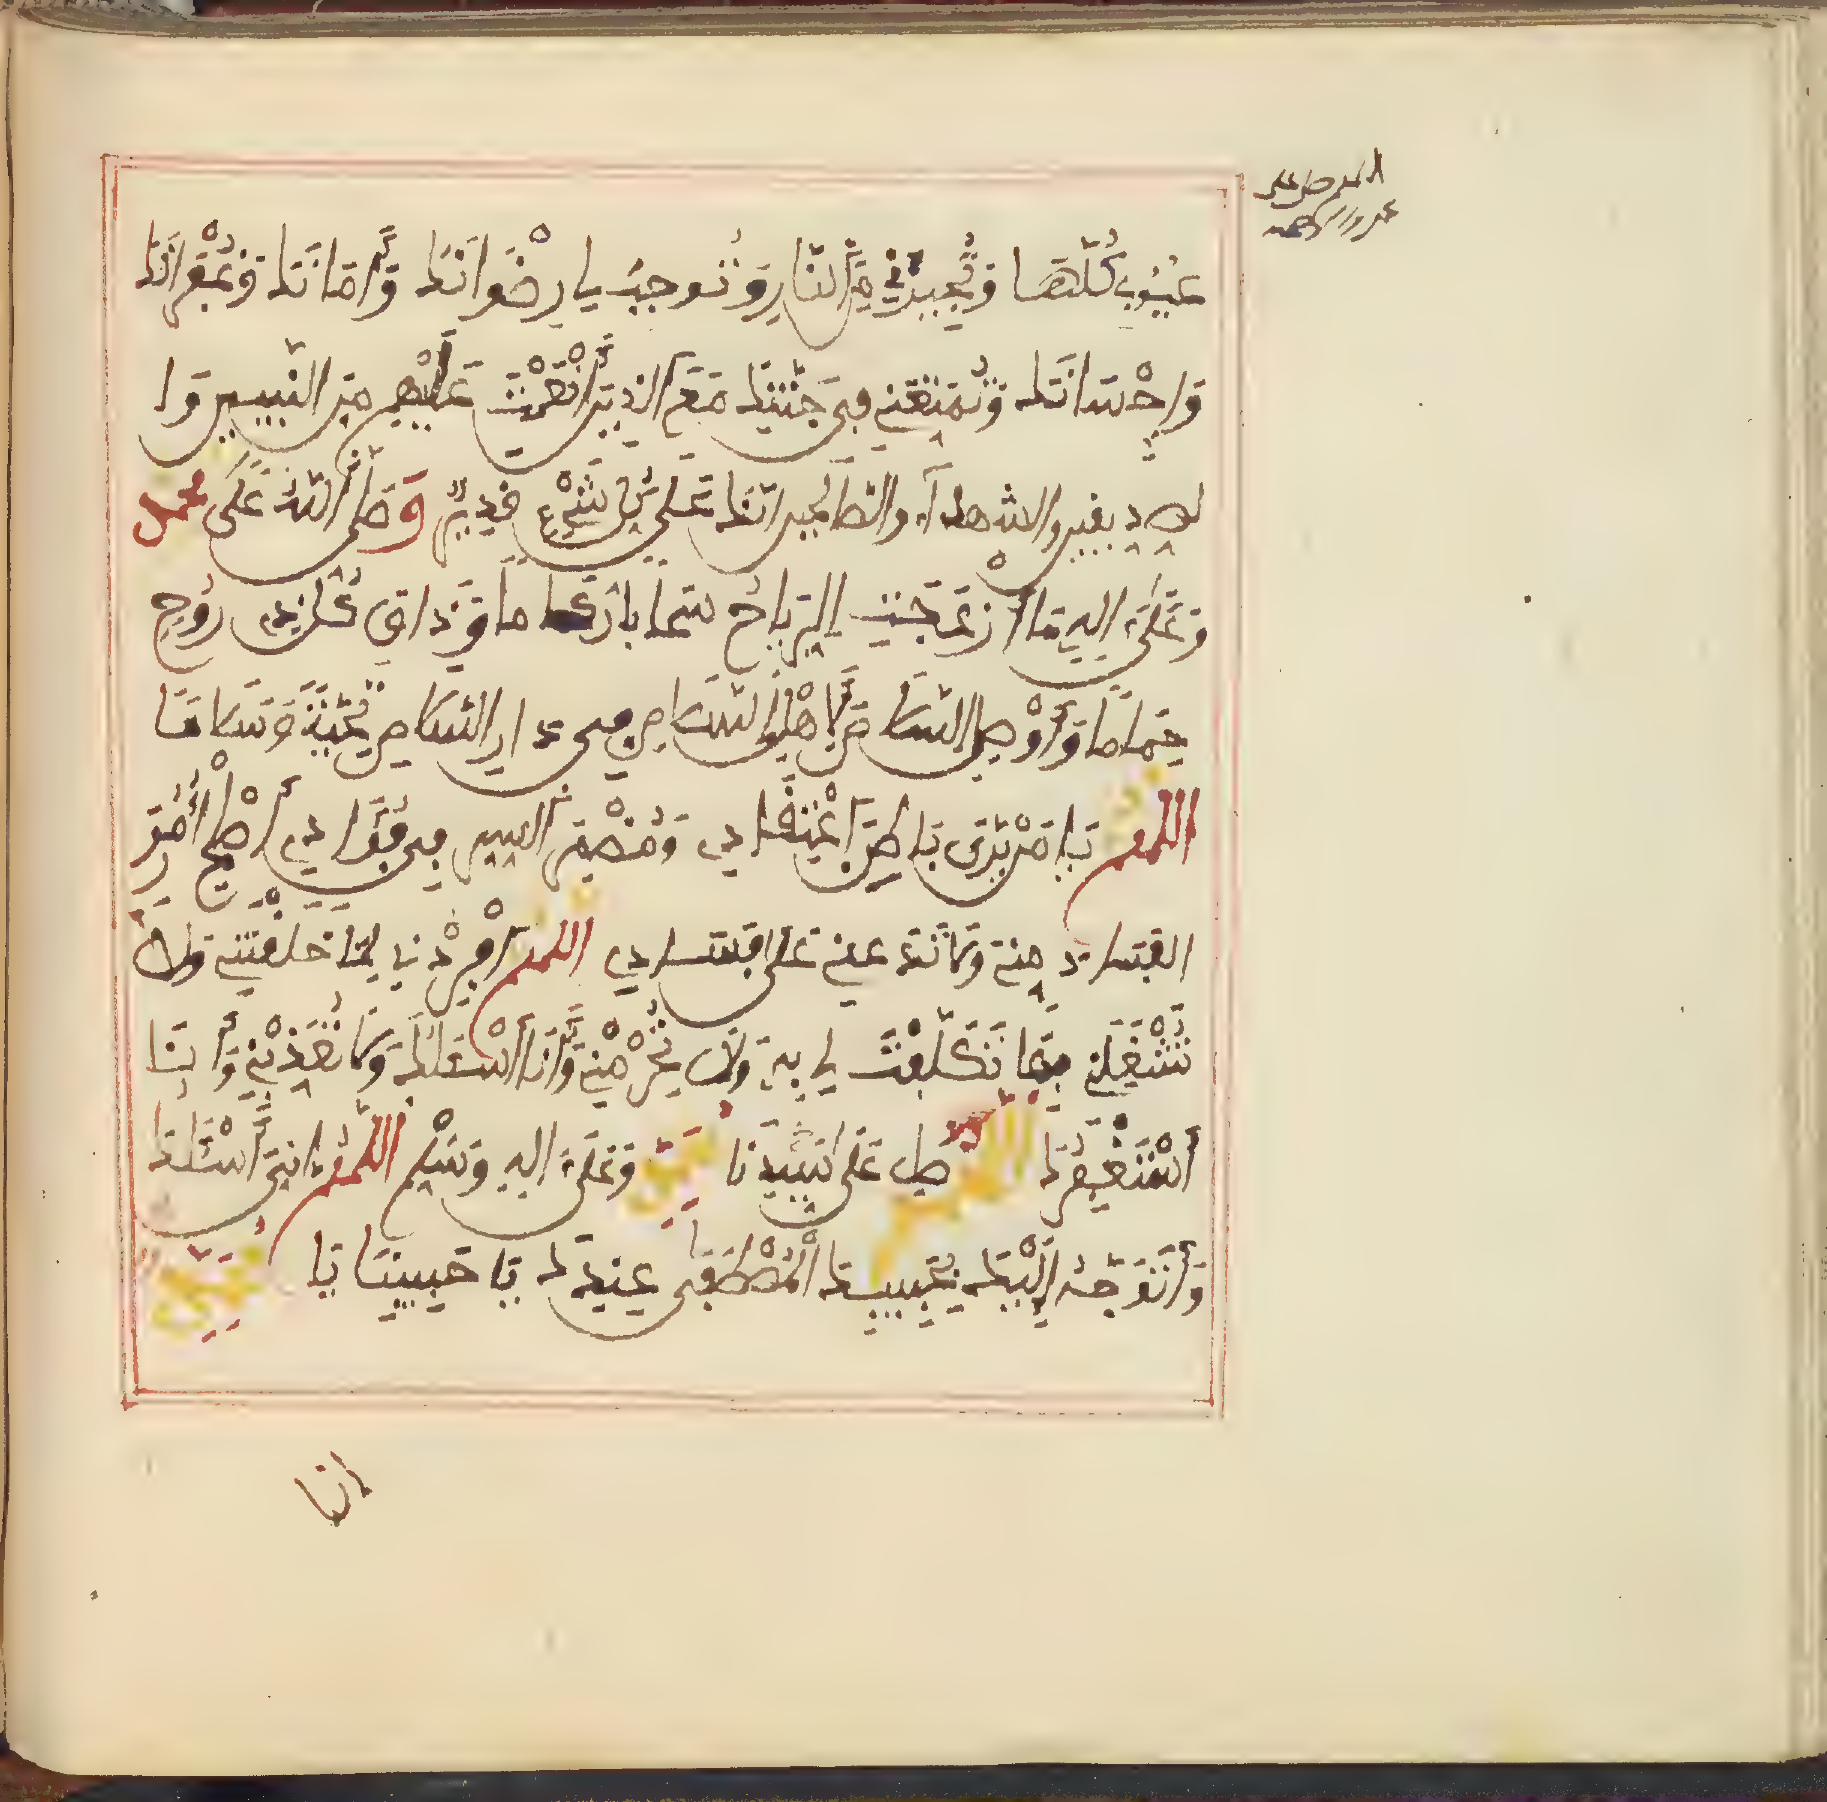 عُيُوبِ كُلِّهَا وَتُجِيرَنِي مِنَ النَّارِ وَتُوجِبَ لِي رِضْوَانَكَ وَأَمَانَكَ وَغُفْرَانَكَ
وَإِحْسَانَكَ وَتُمَتِّعَنِي فِي جَنَّتِكَ مَعَ الذِينَ أَنْعَمْتَ عَلَيْهِم مِّنَ النَّبِيِّينَ وَا
لصديقين والشهداء والصالحين إنك عَلَى كُلِّ شَيْءٍ قَدِيرٌ وَصَلَّى اللَّهُ عَلَى محمد
وَعَلَى آلِهِ مَا أَزْعَجَتِ الرِّيَاحُ سَحَابًا رُكَامًا وَذَاقَ كُلُّ ذِي رُوحٍ
حِمَامًا وَأَوْصِلِ السَّلَامَ لِأَهْلِ السَّلَامِ فِي دَارِ السَّلَامِ تَحِيَّةً وَسَلَامًا
اللهم يَا مَن بِيَدِي
القياد مني ولا تكله علي اللهم أَفْرِدْنِي لِمَا خَلَقْتَنِي وَلَا
تَشْغَلْنِي بِمَا تَكَفَّلْتَ لِي بِهِ وَلَا تَحْرِمْنِي وَأَنَا أَسْئَلُكَ وَلَا تُعَذِّبْنِي وَأَنَا
أَسْتَغْفِرُكَ اللهم صَلِّ عَلَى سَيِّدِنَا محمد وَعَلَى آلِهِ وَسَلِّم اللهم إِنِّي أَسْئَلُكَ
وَأَتَوَجَّهُ إِلَيْكَ بِحَبِيبِكَ الْمُصْطَفَى عِندَكَ يَا حَبِيبَنَا يَا محمد
إنا